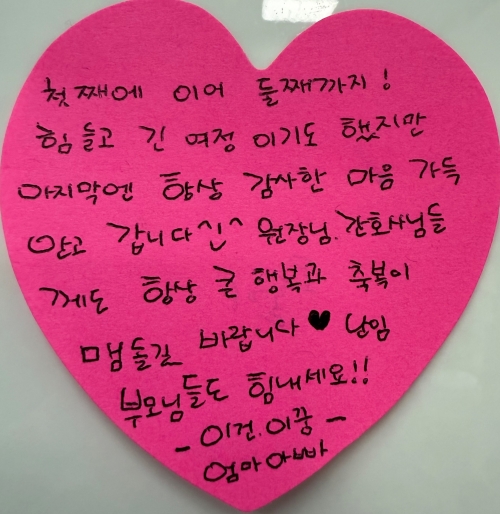 첫째에 이어 둘째까지!
힘들고 긴 여정 이기도 했지만
마지막엔 항상 감사한 마음 가득
안고 갑니다^^ 원장님. 간호사님들
께도 항상 큰 행복과 축복이
맴돌길 바랍니다♥ 난임
부모님들도 힘내세요!!
- 이건.이꿍 -
엄마아빠